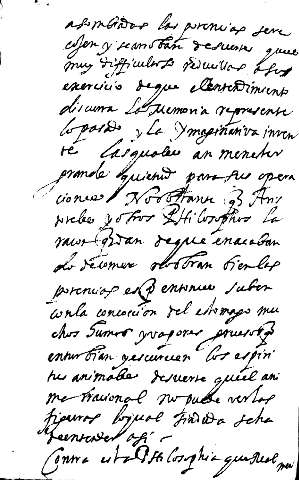 asombradas las potencias se re
cojen y se arroban de suerte que es
muy dificultoso reducillas a su
exercicio de que el entendimiento
discurra la memoria represente
lo pasado y la ymaginativa inven
te las quales an menester
grande quietud para sus opera
ciones No obstante q Aris
toteles y otros Philosophos la
raçon q dan de que en acaban
do de comer no obran bien las
potencias es q entonces suben
con la concocion del estomago mu
chos humos y vapores gruesos q
enturbian y escurecen los espiri
tus animales de suerte que el ani
ma racional no puede ver las
figuras lo qual sin duda se ha
de entender asi
Contra esta Philosophia que qual